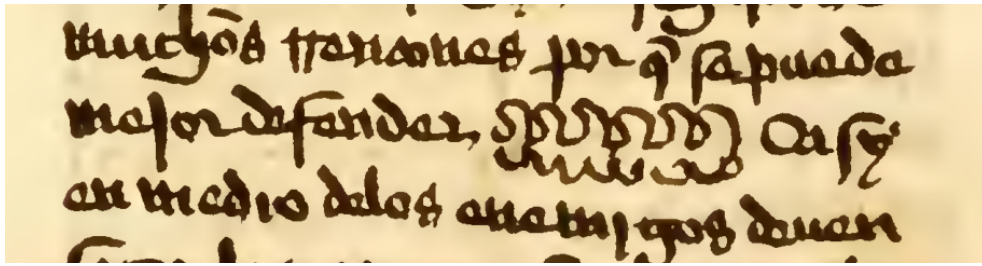 muchos por q̃ se puede
mejor defender, Ca sy
en medio delos enemigos deuen